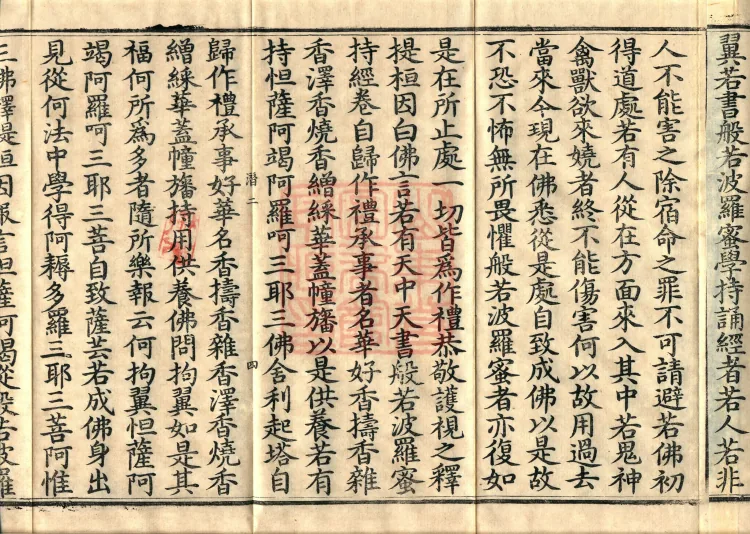 翼若書般若波羅蜜學持誦經者若人若非
人不能害之除宿命之罪不可請避若佛初
得道處若有人從在方面來入其中若鬼神
禽獸欲來嬈者終不能傷害何以故用過去
當來今現在佛悉從是處自致成佛以是故
不恐不怖無所畏懼般若波羅蜜者亦復如
是在所止處一切皆爲作禮恭敬護視之釋
提桓因白佛言若有天中天書般若波羅蜜
持經卷自歸作禮承事者名華好香擣香雜
香澤香燒香繒綵華蓋幢旛以是供養若有
持怛薩阿竭阿羅呵三耶三佛舍利起塔自
潛二
四
歸作禮承事好華名香擣香雜香澤香燒香
繒綵華蓋幢旛持用供養佛問拘翼如是其
福何所爲多者隨所樂報云何拘翼怛薩阿
竭阿羅呵三耶三菩自致薩芸若成佛身出
見從何法中學得阿耨多羅三耶三菩阿惟
三佛釋提桓因報言怛薩阿竭從般若波羅